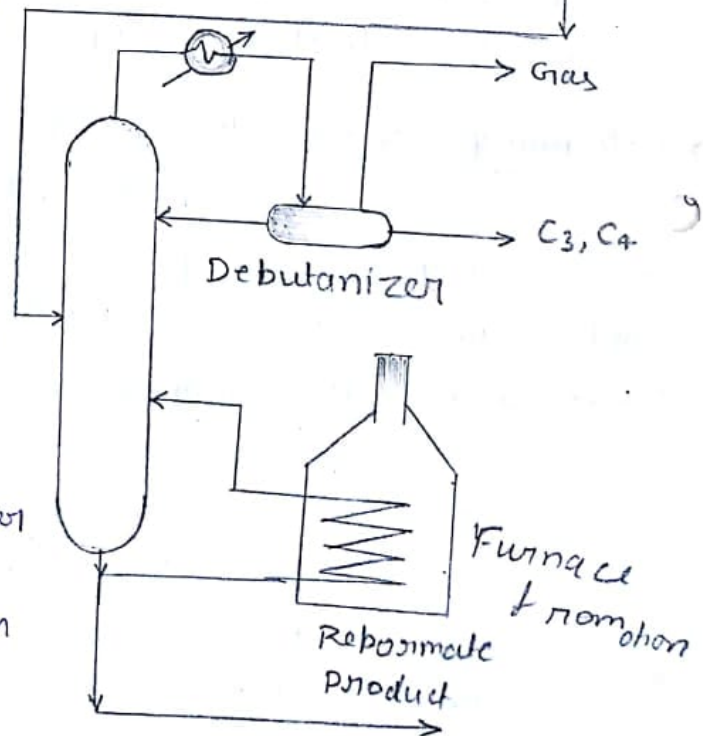 Gas
C3, C4
Debutanizer
Furnace
Reformate
Product